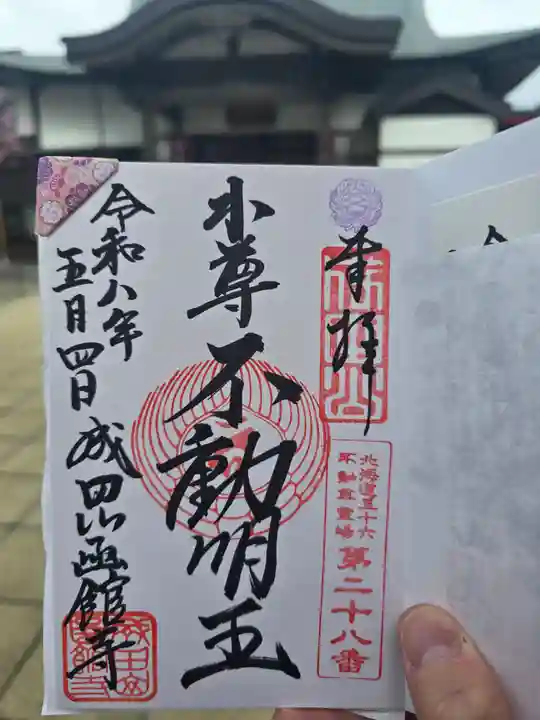 奉拝
北海道三十六
不動尊霊場
第二十八番
本尊不動明王
令和八年
五月四日
成田山函館寺